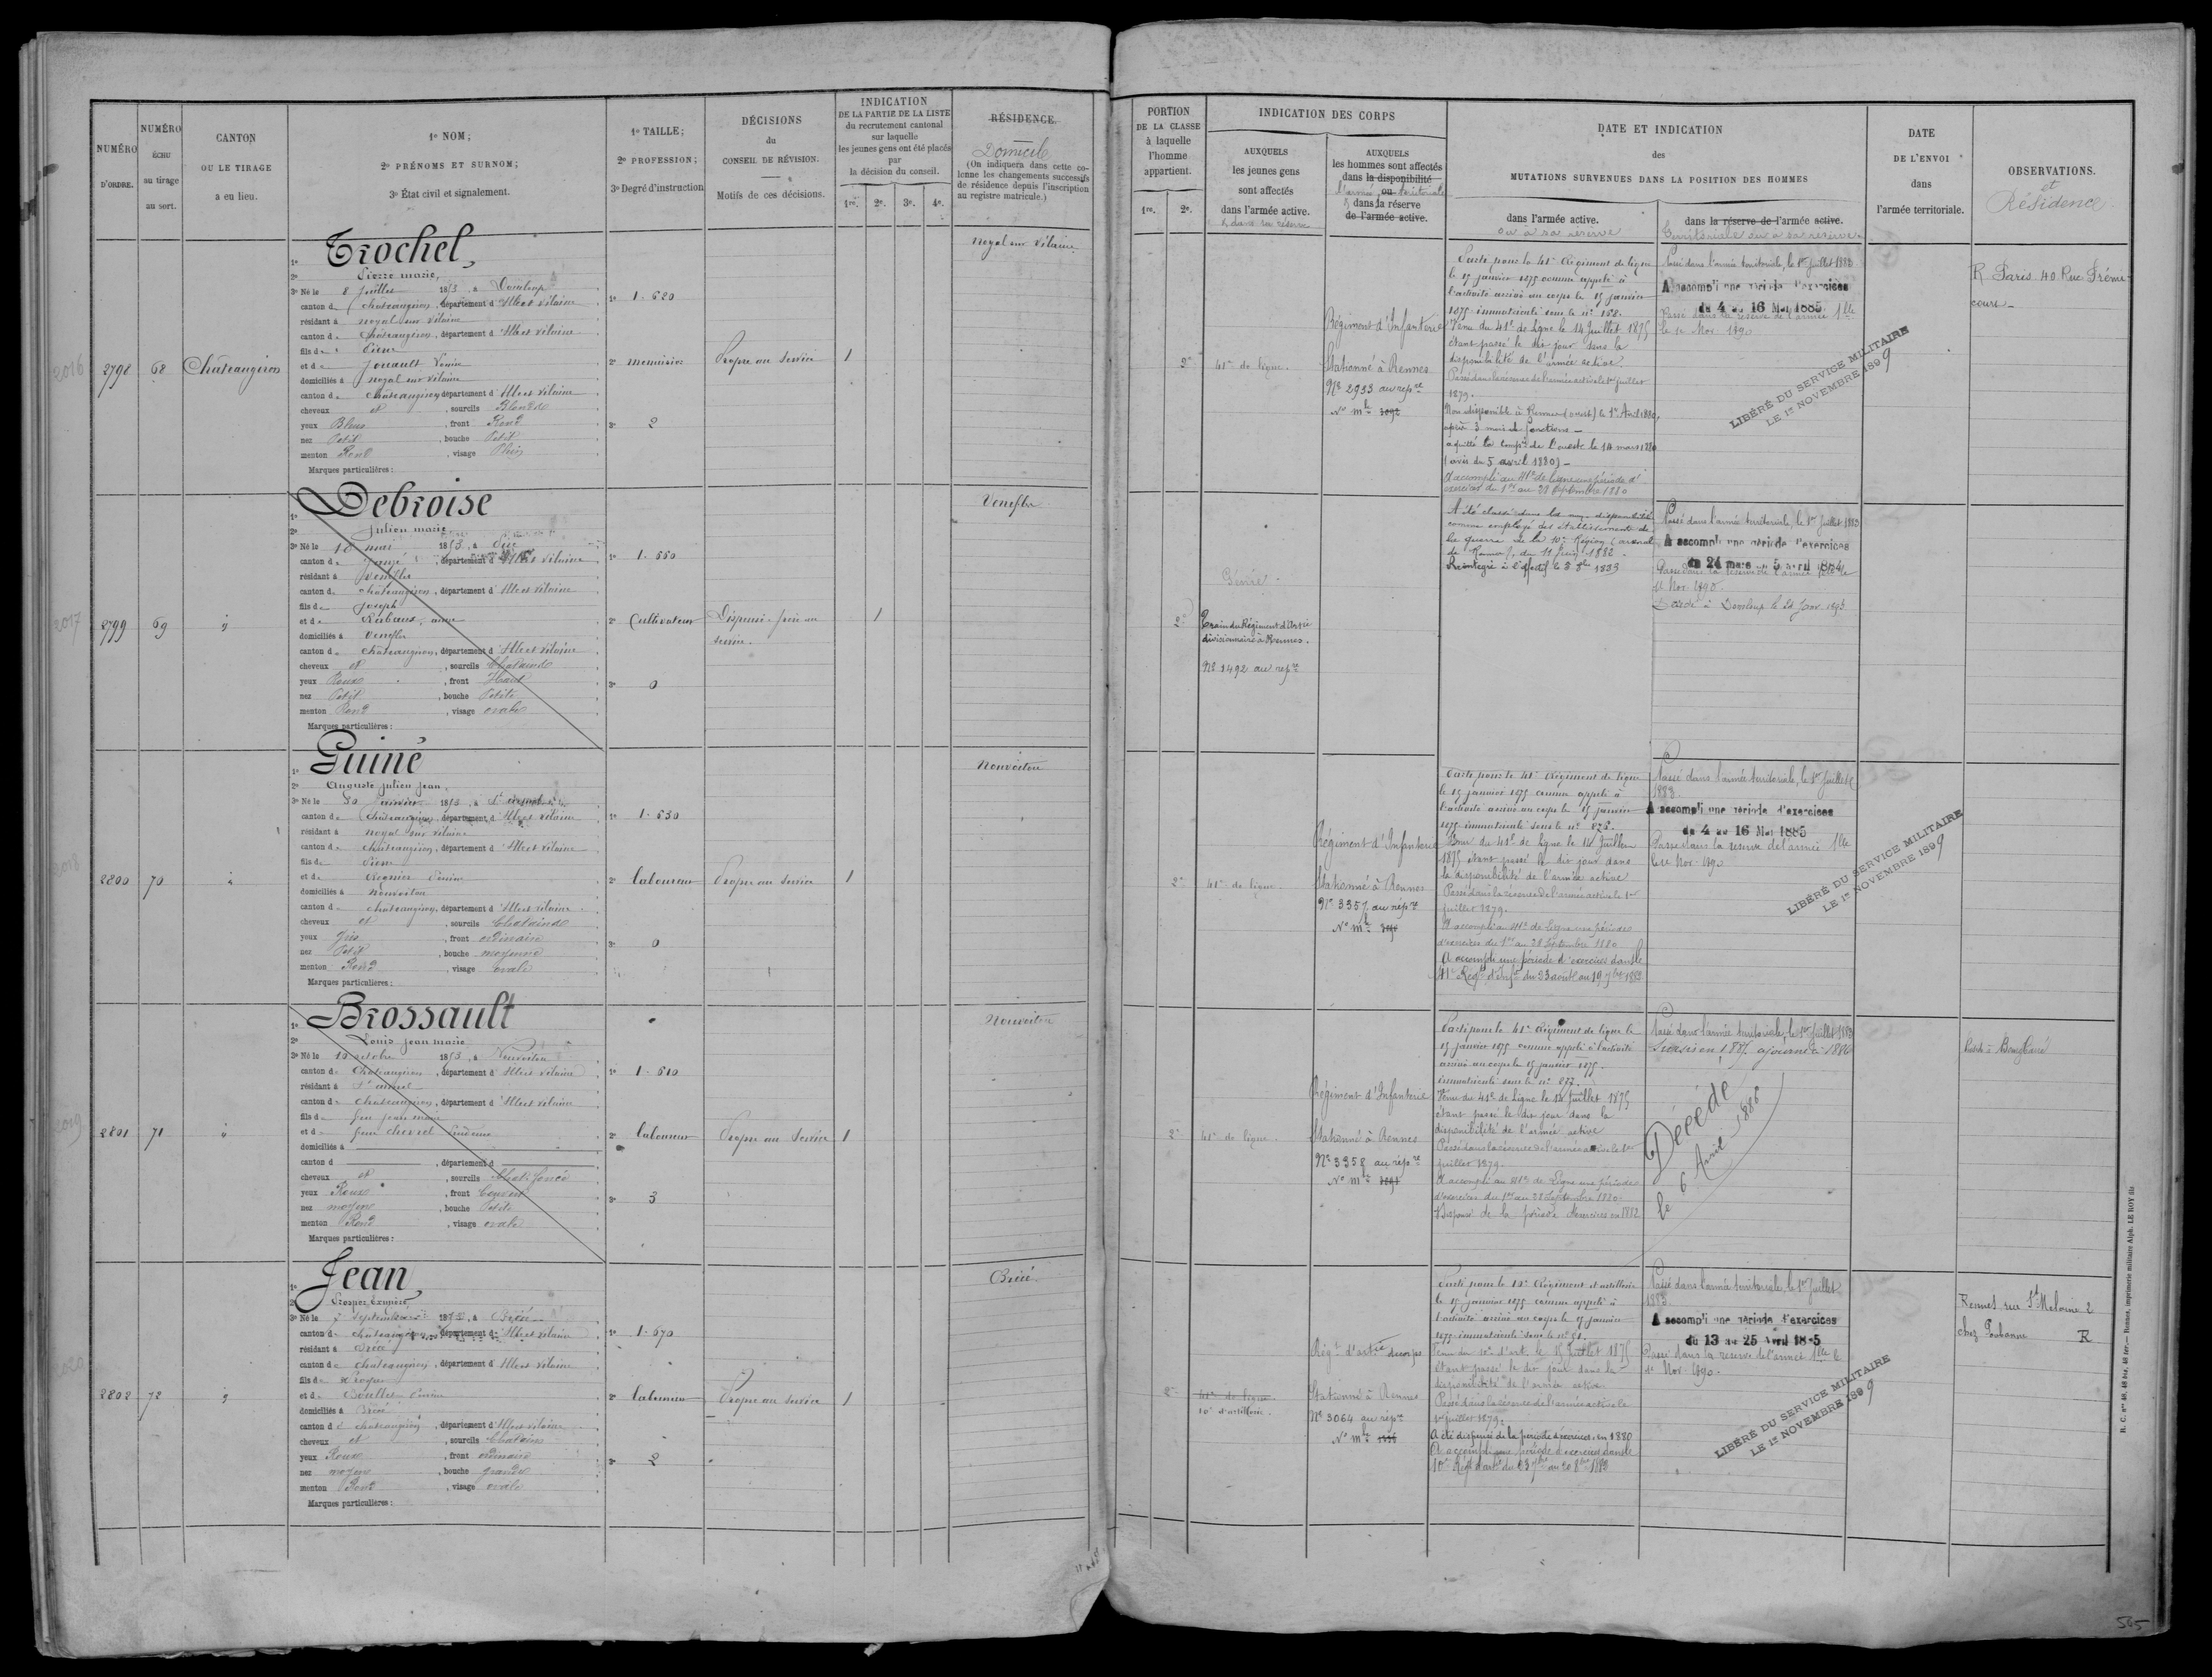 NUMÉRO
D'ORDRE.
NUMÉRO
ÉCHU
au tirage
au sort.
CANTON
OU LE TIRAGE
a eu lieu.
1º NOM;
2º PRÉNOMS ET SURNOM;
3º État civil et signalement.
1º TAILLE;
2º PROFESSION;
3º Degré d'instruction
DÉCISIONS
du
CONSEIL DE RÉVISION.
Motifs de ces décisions.
INDICATION
DE LA PARTIE DE LA LISTE
du recrutement cantonal
sur laquelle
les jeunes gens ont été placés
par
la décision du conseil.
1re. 2e. 3e. 4e.
RÉSIDENCE.
Domicile
(On indiquera dans cette co-
lonne les changements successifs
de résidence depuis l'inscription
au registre matricule.)
PORTION
DE LA CLASSE
à laquelle
l'homme
appartient.
1re. 2e.
INDICATION DES CORPS
AUXQUELS
les jeunes gens
sont affectés
dans l'armée active.
& dans sa réserve
AUXQUELS
les hommes sont affectés
dans la disponibilité
l'armée ou territoriale
& dans la réserve
de l'armée active.
DATE ET INDICATION
des
MUTATIONS SURVENUES DANS LA POSITION DES HOMMES
dans l'armée active.
ou à sa réserve
dans la réserve de l'armée active.
Territoriale ou à sa réserve
DATE
DE L'ENVOI
dans
l'armée territoriale.
OBSERVATIONS.
et
Résidence
2016
2798
68
Châteaugiron
1º Trochel,
2º Pierre marie,
3º Né le 8 Juillet 1853, à Domloup
canton de Châteaugiron, département d'Ille et Vilaine
résidant à noyal sur vilaine
canton de Châteaugiron, département d'Ille et Vilaine
fils de Pierre
et de Jouault Louise
domiciliés à noyal sur vilaine
canton de Châteaugiron, département d'Ille et Vilaine
cheveux et , sourcils Blonds
yeux Bleus , front Rond
nez Petit , bouche Petite
menton Rond , visage Plein
Marques particulières :
1º 1.620
2º menuisier
3º 2
Propre au Service
1
noyal sur Vilaine
2e
41e de ligne.
Régiment d'Infanterie
Stationné à Rennes
Nº 2933 au repre
Nº mle
Parti pour le 41e Régiment de ligne
le 15 janvier 1875 comme appelé à
l'activité arrivé au corps le 15 janvier
1875 immatriculé sous le nº 168.
Venu du 41e de Ligne le 14 Juillet 1875
étant passé le dit jour dans la
disponibilité de l'armée active.
Passé dans la réserve de l'armée active le 1er juillet
1879.
Non disponible à Rennes (ouest) le 1er Avril 1880,
après 3 mois de fonctions —
a quitté la Compie de l'ouest le 14 mars 1880
(avis du 5 avril 1880) —
A accompli au 41e de ligne une période d'
exercices du 1er au 28 Septembre 1880
Passé dans l'armée territoriale, le 1er Juillet 1883
A accompli une période d'exercices
du 4 au 16 Mai 1885.
Passé dans la réserve de l'armée Tlle
le 1er Nov. 1890
LIBÉRÉ DU SERVICE MILITAIRE
LE 1er NOVEMBRE 1899
R Paris. 40 Rue Frémi-
court —
2017
2799
69
1º Debroise
2º Julien marie
3º Né le 10 mai 1853, à
canton de Janzé, département d'Ille et Vilaine
résidant à Venefles
canton de Châteaugiron, département d'Ille et Vilaine
fils de Joseph
et de Rabaux, anne
domiciliés à Venefles
canton de Châteaugiron, département d'Ille et Vilaine
cheveux et , sourcils Chatains
yeux Roux , front Haut
nez Petit , bouche Petite
menton Rond , visage ovale
Marques particulières :
1º 1.660
2º Cultivateur
3º 0
Dispensé frère au
service.
1
Venefles
2e
Génie.
Train du Régiment d'Artie
divisionnaire à Rennes.
Nº 1492 au repre
A été classé dans la non disponibilité
comme employé des établissements de
la guerre de la 10e Région (arsenal
de Rennes), du 11 1882.
Réintégré à l'effectif le 3 8bre 1883
Passé dans l'armée territoriale, le 1er Juillet 1883
A accompli une période d'exercices
du 24 mars au 5 avril 1884
Passé dans la réserve de l'armée Tlle le
1er Nov. 1890
Décédé à Domloup le 24 Janv. 1893
2018
2800
70
1º Guiné
2º Auguste Julien Jean,
3º Né le 30 Janvier 1853, à St armel
canton de Châteaugiron, département d'Ille et Vilaine
résidant à noyal sur vilaine
canton de Châteaugiron, département d'Ille et Vilaine
fils de Pierre
et de Regnier
domiciliés à nouvoitou
canton de Châteaugiron, département d'Ille et Vilaine
cheveux et , sourcils Chatains
yeux Gris , front ordinaire
nez Petit , bouche moyenne
menton Rond , visage ovale
Marques particulières :
1º 1.630
2º laboureur
3º 0
Propre au Service
1
Nouvoitou
2e
41e de ligne
Régiment d'Infanterie
Stationné à Rennes
Nº 3357 au repre
Nº mle
Parti pour le 41e Régiment de ligne
le 15 janvier 1875 comme appelé à
l'activité arrivé au corps le 15 janvier
1875 immatriculé sous le nº 876.
Venu du 41e de Ligne le 14 Juillet
1875 étant passé le dit jour dans
la disponibilité de l'armée active
Passé dans la réserve de l'armée active le 1er
Juillet 1879.
A accompli au 41e de Ligne une période
d'exercices du 1er au 28 Septembre 1880
A accompli une période d'exercices dans le
41e Régt d'Infie du 23 août au 19 7bre 1882
Passé dans l'armée territoriale, le 1er Juillet
1883.
A accompli une période d'exercices
du 4 au 16 Mai 1885
Passé dans la réserve de l'armée Tlle
le 1er Nov. 1890
LIBÉRÉ DU SERVICE MILITAIRE
LE 1er NOVEMBRE 1899
2019
2801
71
1º Brossault
2º Louis Jean marie
3º Né le 10 octobre 1853, à Nouvoitou
canton de Châteaugiron, département d'Ille et Vilaine
résidant à St armel
canton de Châteaugiron, département d'Ille et Vilaine
fils de feu Jean marie
et de feue chevrel
domiciliés à
canton d , département d
cheveux et , sourcils Chat. foncé
yeux Roux , front Couvert
nez moyen , bouche Petite
menton Rond , visage ovale
Marques particulières :
1º 1.610
2º laboureur
3º 3
Propre au Service
1
Nouvoitou
2e
41e de ligne.
Régiment d'Infanterie
Stationné à Rennes
Nº 3358 au repre
Nº mle
Parti pour le 41e Régiment de ligne le
15 janvier 1875 comme appelé à l'activité
arrivé au corps le 15 janvier 1875.
immatriculé sous le nº 877.
Venu du 41e de Ligne le 14 Juillet 1875
étant passé le dit jour dans la
disponibilité de l'armée active
Passé dans la réserve de l'armée active le 1er
Juillet 1879.
A accompli au 41e de Ligne une période
d'exercices du 1er au 28 Septembre 1880
Dispensé de la période d'exercices en 1882
Passé dans l'armée territoriale, le 1er Juillet 1883
Sursis en 1885, ajourné à 1886
Décédé
le 6 Avril 1886
Bourgbarré
2020
2802
72
1º Jean,
2º Prosper
3º Né le 7 Septembre 1853, à Brécé
canton de Châteaugiron, département d'Ille et Vilaine
résidant à Brécé
canton de Châteaugiron, département d'Ille et Vilaine
fils de Prosper
et de
domiciliés à Brécé
canton de Châteaugiron, département d'Ille et Vilaine
cheveux et , sourcils Chatains
yeux Roux , front ordinaire
nez moyen , bouche grande
menton Rond , visage ovale
Marques particulières :
1º 1.670
2º laboureur
3º 2
Propre au Service
1
Brécé.
2e
41e de ligne
10e d'artillerie.
Régt d'artie de corps
Stationné à Rennes
Nº 3064 au repre
Nº mle
Parti pour le 10e Régiment d'artillerie
le 15 janvier 1875 comme appelé à
l'activité arrivé au corps le 15 janvier
1875 immatriculé sous le nº 81.
Venu du 10e d'art. le 15 Juillet 1875
étant passé le dit jour dans la
disponibilité de l'armée active
Passé dans la réserve de l'armée active le
1er Juillet 1879.
A été dispensé de la période d'exercices en 1880
A accompli une période d'exercices dans le
10e Régt d'artie du 23 7bre au 20 8bre 1882
Passé dans l'armée territoriale, le 1er Juillet
1883.
A accompli une période d'exercices
du 13 au 25 Avril 1885
Passé dans la réserve de l'armée Tlle le
1er Nov. 1890.
LIBÉRÉ DU SERVICE MILITAIRE
LE 1er NOVEMBRE 1899
Rennes rue St Melaine 2
chez R
R. C. nos 46, 46 bis, 46 ter.— Rennes, imprimerie militaire Alph. LE ROY fils
505